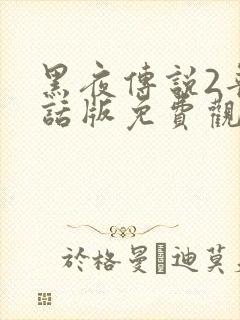 黑夜傳説2
話版免費觀
於格曼·迪莫